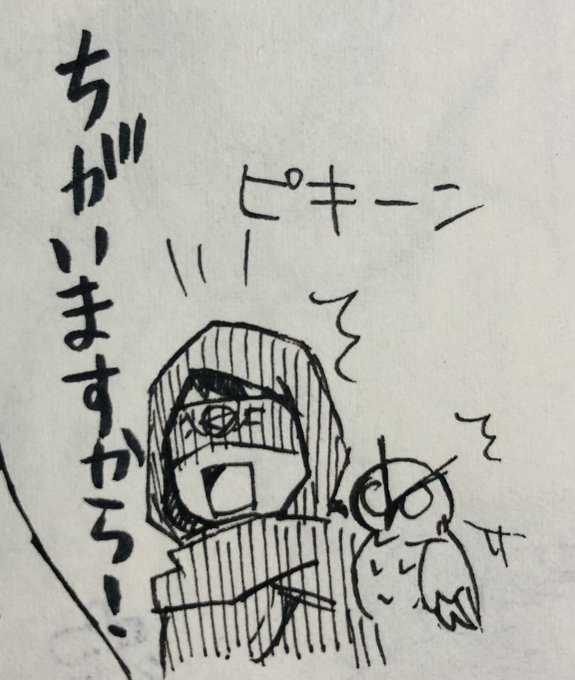 ちがいますから!
ピキーン